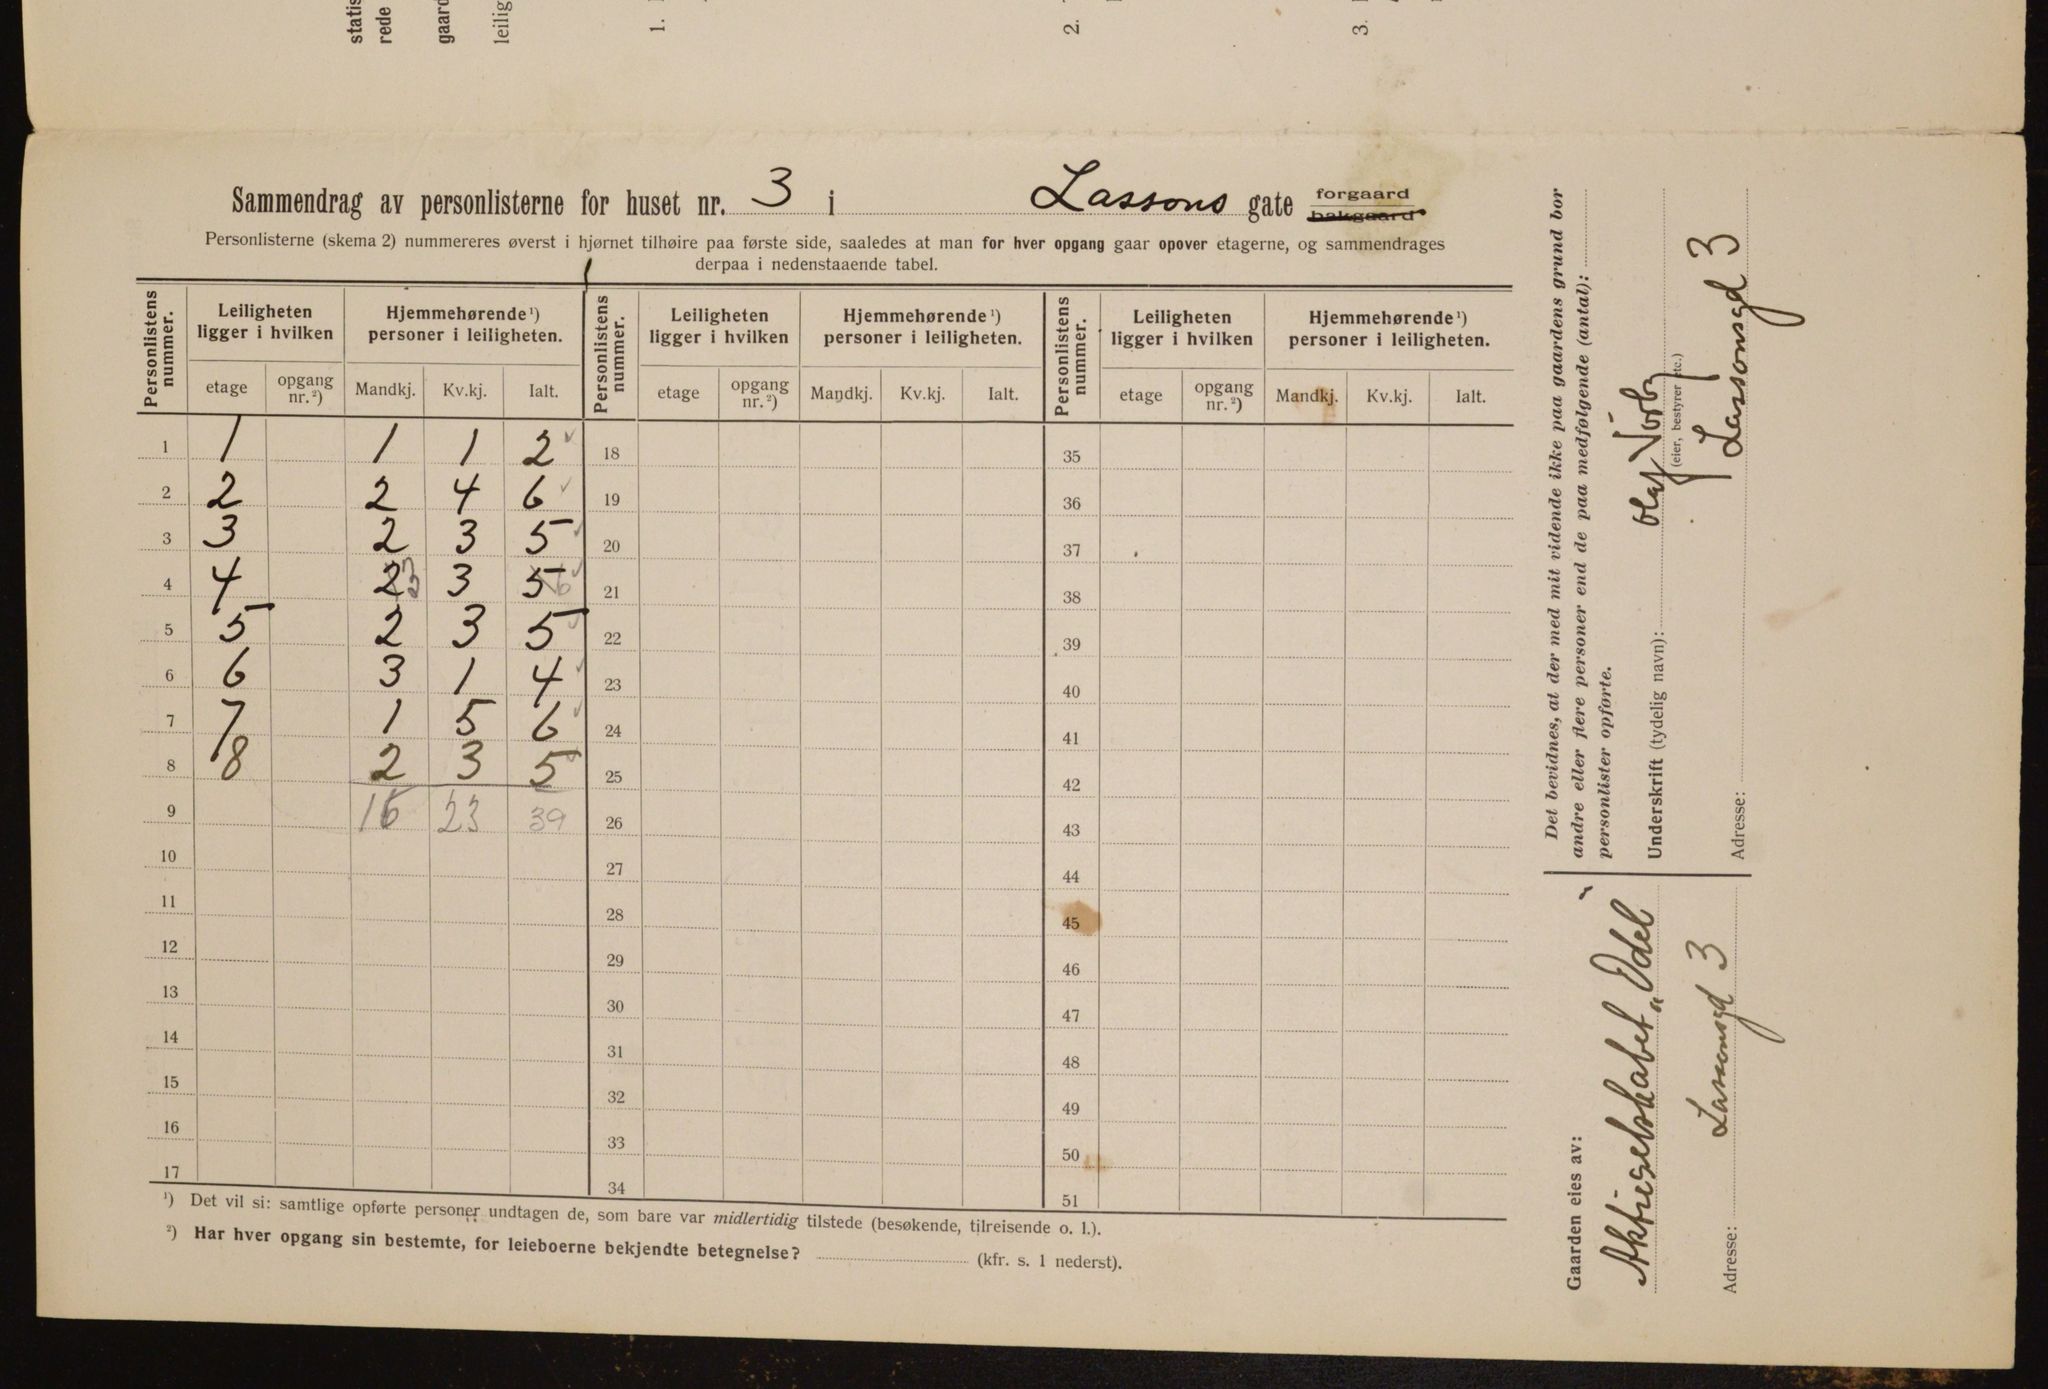 statis
rede
gaard
leilig
1.
2.
3.
Sammendrag av personlisterne for huset nr. 3 i Lassons gate forgaard
bakgaard
Personlisterne (skema 2) nummereres øverst i hjørnet tilhøire paa første side, saaledes at man for hver opgang gaar opover etagerne, og sammendrages
derpaa i nedenstaaende tabel.
Personlistens nummer. Leiligheten ligger i hvilken Hjemmehørende¹) personer i leiligheten. Personlistens nummer. Leiligheten ligger i hvilken Hjemmehørende¹) personer i leiligheten. Personlistens nummer. Leiligheten ligger i hvilken Hjemmehørende¹) personer i leiligheten.
etage opgang nr.²) Mandkj. Kv.kj. Ialt. etage opgang nr.²) Mandkj. Kv.kj. Ialt. etage opgang nr.²) Mandkj. Kv.kj. Ialt.
1 1 1 1 2 18 35
2 2 2 4 6 19 36
3 3 2 3 5 20 37
4 4 2 3 3 5 6 21 38
5 5 2 3 5 22 39
6 6 3 1 4 23 40
7 7 1 5 6 24 41
8 8 2 3 5 25 42
9 16 23 39 26 43
10 27 44
11 28 45
12 29 46
13 30 47
14 31 48
15 32 49
16 33 50
17 34 51
¹) Det vil si: samtlige opførte personer undtagen de, som bare var midlertidig tilstede (besøkende, tilreisende o. l.).
²) Har hver opgang sin bestemte, for leieboerne bekjendte betegnelse? (kfr. s. 1 nederst).
Det bevidnes, at der med mit vidende ikke paa gaardens grund bor
andre eller flere personer end de paa medfølgende (antal):
personlister opførte.
Underskrift (tydelig navn): Olaf
(eier, bestyrer etc.)
Adresse: Lassonsgd 3
Gaarden eies av:
Aktieselskabet „Odel"
Adresse: Lassonsgd 3